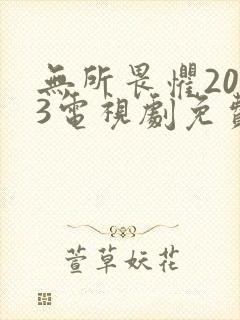 無所畏懼20
3電視劇免費
萱草妖花